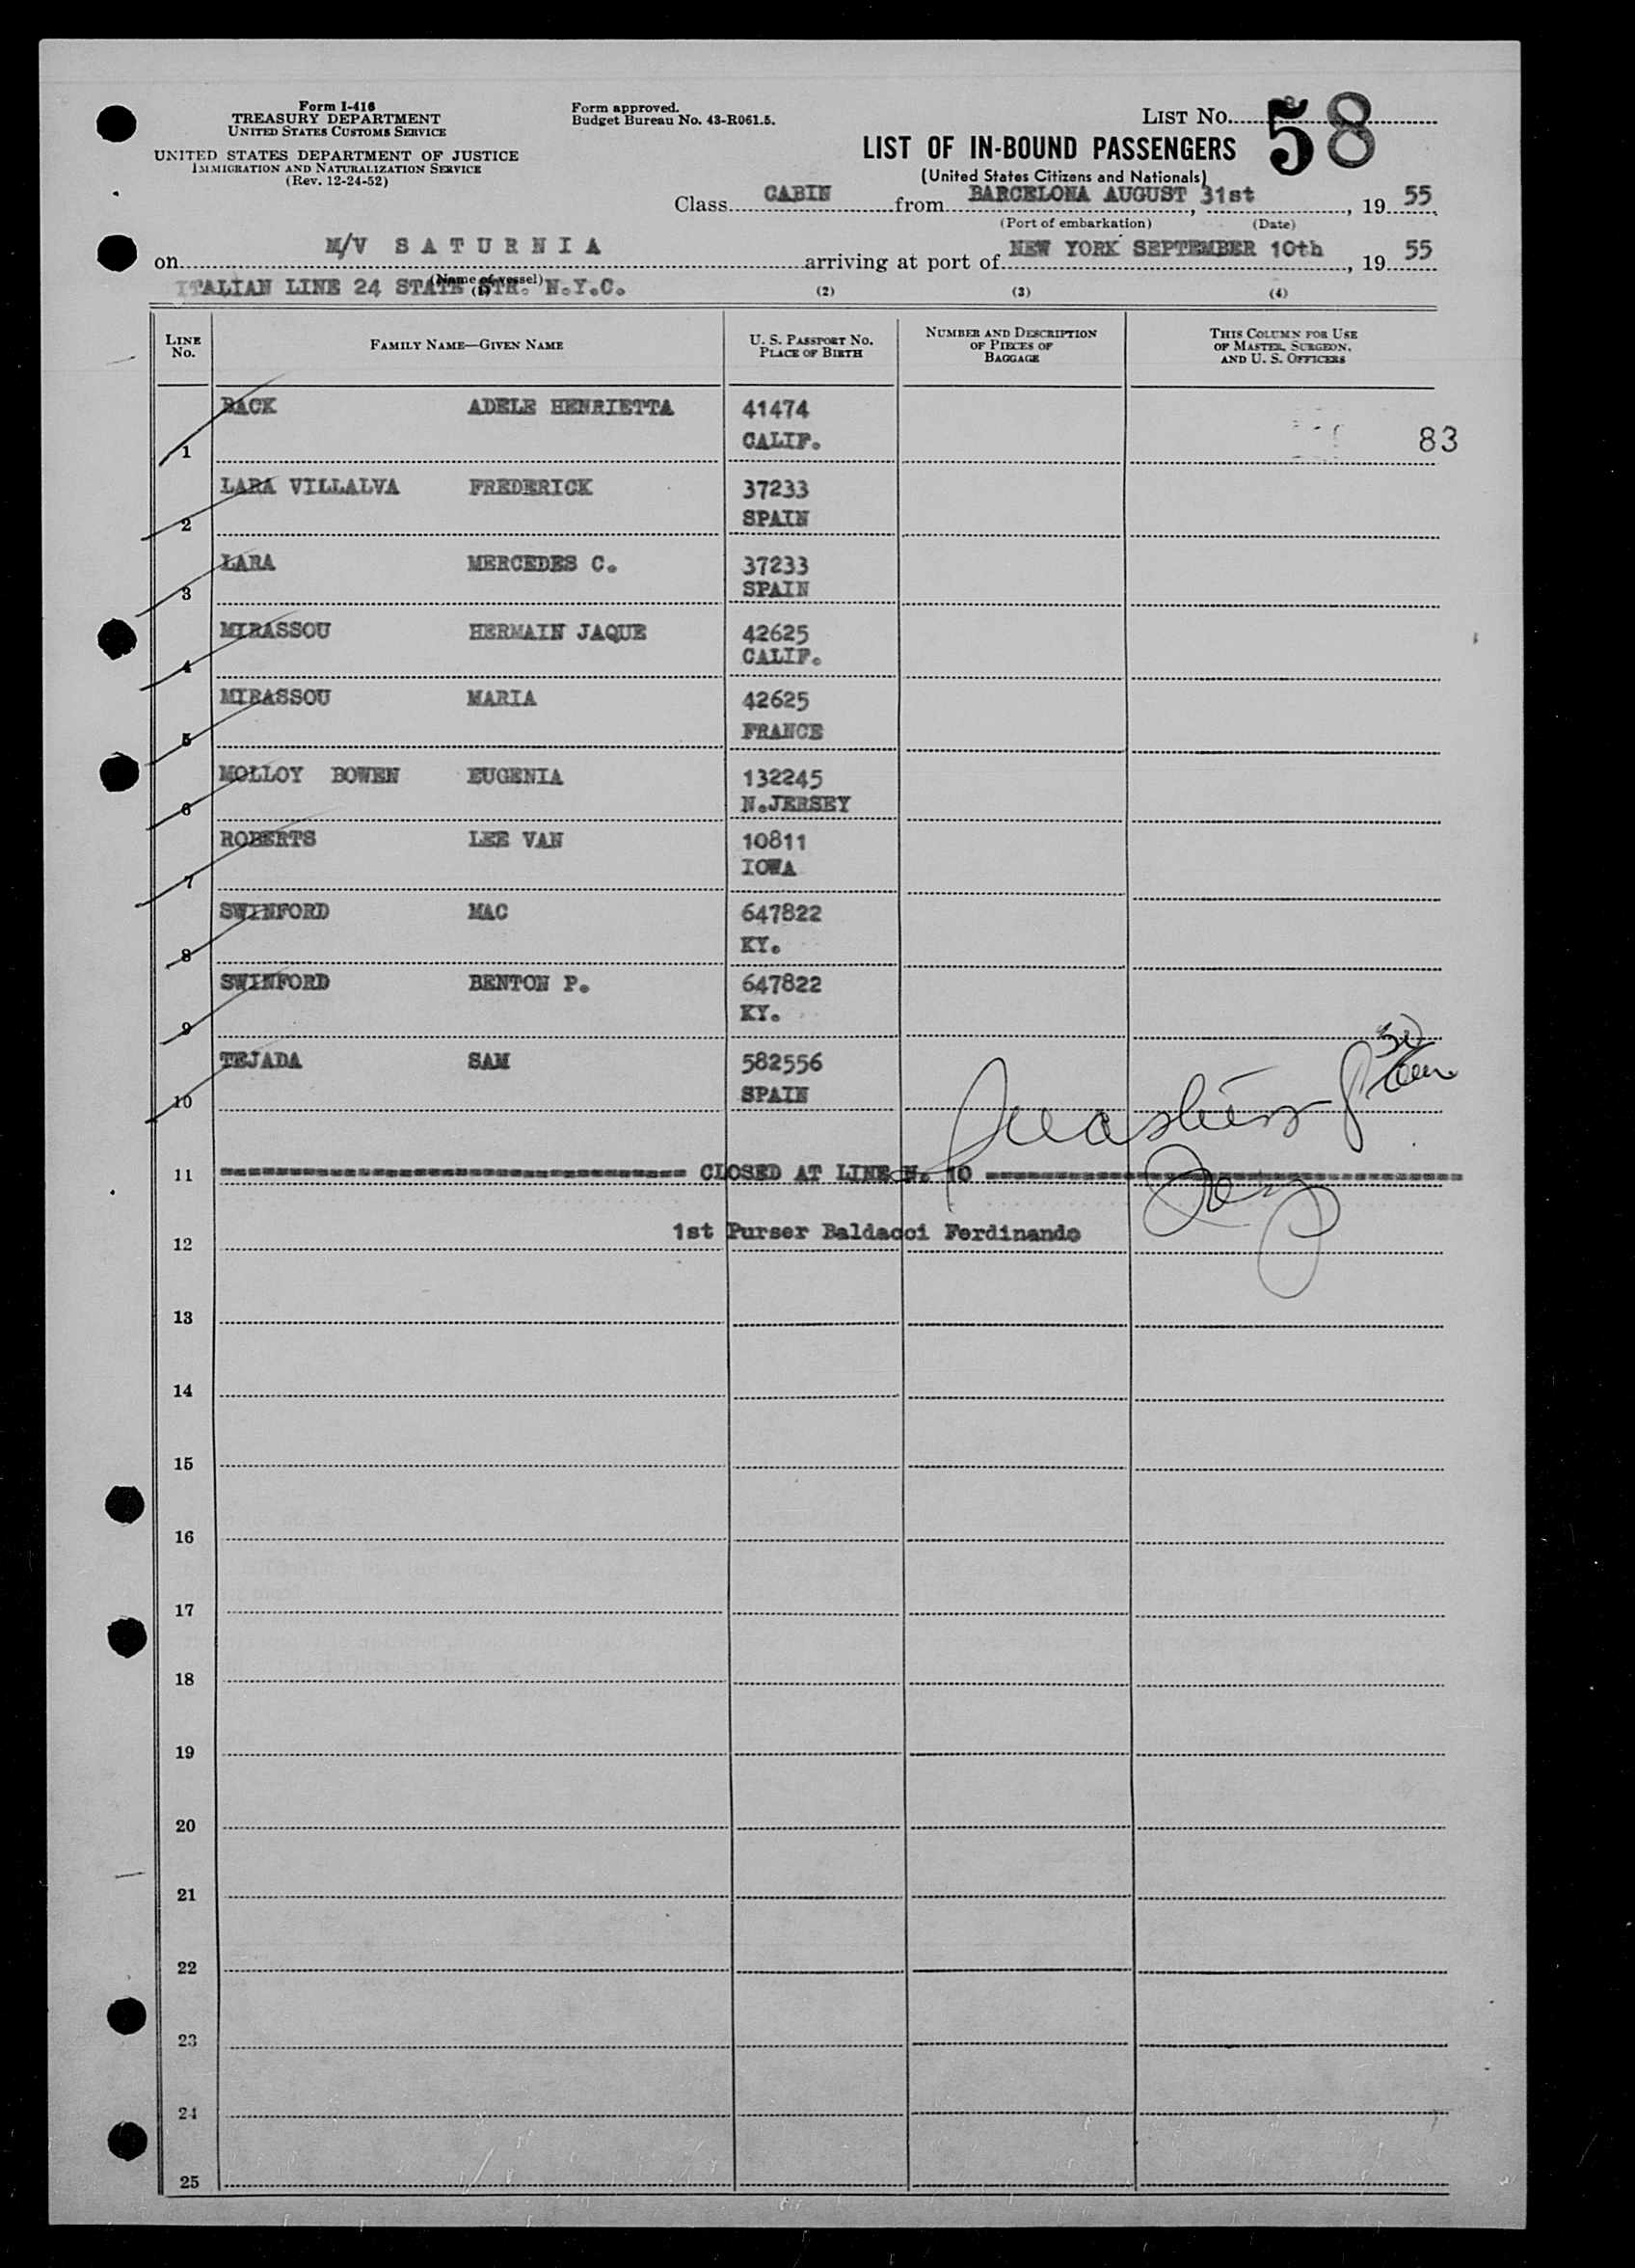 Form I-416
TREASURY DEPARTMENT
UNITED STATES CUSTOMS SERVICE
UNITED STATES DEPARTMENT OF JUSTICE
IMMIGRATION AND NATURALIZATION SERVICE
(Rev. 12-24-52)
Form approved.
Budget Bureau No. 43-R061.5.
LIST No. 58
LIST OF IN-BOUND PASSENGERS
(United States Citizens and Nationals)
Class CABIN from BARCELONA AUGUST 31st, 19 55
(Port of embarkation) (Date)
on M/V S A T U R N I A arriving at port of NEW YORK SEPTEMBER 10th, 19 55
(Name of vessel)
ITALIAN LINE 24 STATE STR. N.Y.C.
(1) (2) (3) (4)
LINE No. FAMILY NAME—GIVEN NAME U. S. PASSPORT NO. PLACE OF BIRTH NUMBER AND DESCRIPTION OF PIECES OF BAGGAGE THIS COLUMN FOR USE OF MASTER, SURGEON, AND U. S. OFFICERS
1 BACK ADELE HENRIETTA 41474 83
CALIF.
2 LARA VILLALVA FREDERICK 37233
SPAIN
3 LARA MERCEDES C. 37233
SPAIN
4 MIRASSOU HERMAIN JAQUE 42625
CALIF.
5 MIRASSOU MARIA 42625
FRANCE
6 MOLLOY BOWEN EUGENIA 132245
N.JERSEY
7 ROBERTS LEE VAN 10811
IOWA
8 SWINFORD MAC 647822
KY.
9 SWINFORD BENTON P. 647822
KY.
10 TEJADA SAM 582556
SPAIN
11 CLOSED AT LINE N. 10
12 1st Purser Baldacci Ferdinando
13
14
15
16
17
18
19
20
21
22
23
24
25